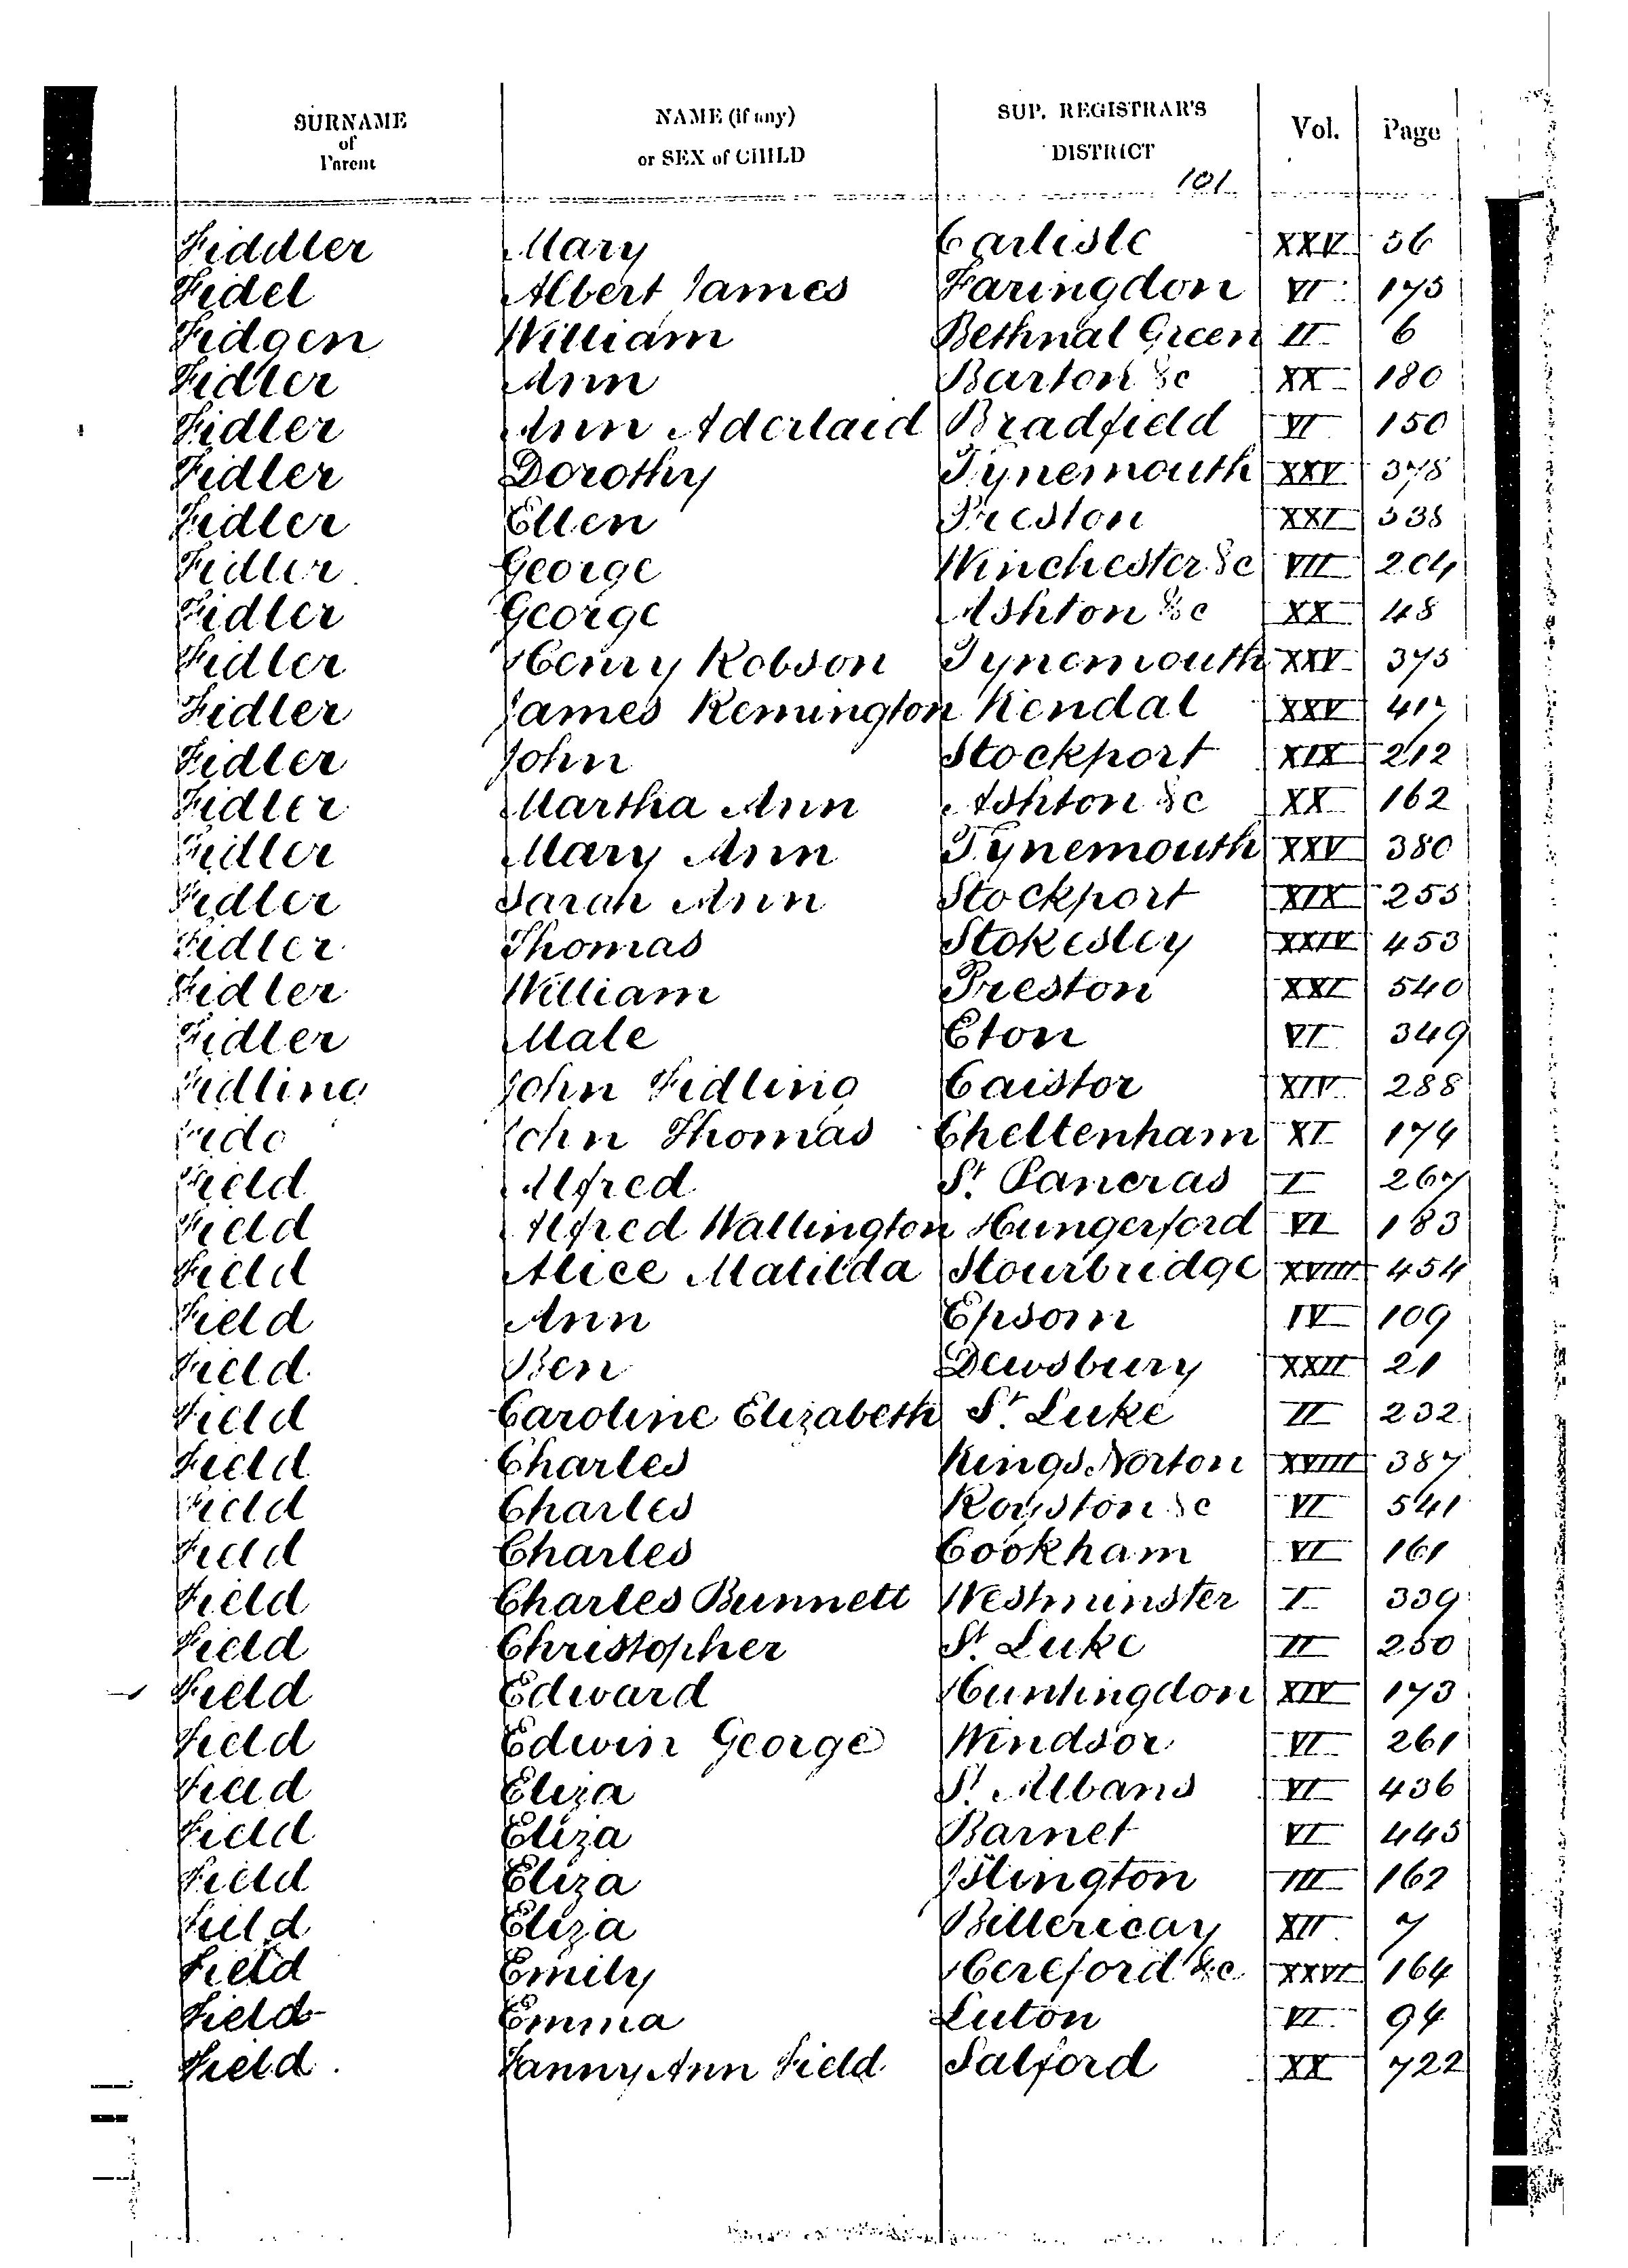 SURNAME of Parent NAME (if any) or SEX of CHILD SUP. REGISTRAR'S DISTRICT Vol. Page
101
Fiddler Mary Carlisle XXV 56
Fidel Albert James Faringdon VI 175
Fidgen William Bethnal Green II 6
Fidler Ann Barton &c XX 180
Fidler Ann Aderlaid Bradfield VI 150
Fidler Dorothy Tynemouth XXV 378
Fidler Ellen Preston XXI 538
Fidler George Winchester &c VII 204
Fidler George Ashton &c XX 48
Fidler Henry Robson Tynemouth XXV 375
Fidler James Remington Kendal XXV 417
Fidler John Stockport XIX 212
Fidler Martha Ann Ashton &c XX 162
Fidler Mary Ann Tynemouth XXV 380
Fidler Sarah Ann Stockport XIX 255
Fidler Thomas Stokesley XXIV 453
Fidler William Preston XXI 540
Fidler Male Eton VI 349
Fidling John Fidling Caistor XIV 288
Fido John Thomas Cheltenham XI 174
Field Alfred St. Pancras I 267
Field Alfred Wallington Hungerford VI 183
Field Alice Matilda Stourbridge XVIII 454
Field Ann Epsom IV 109
Field Ben Dewsbury XXII 21
Field Caroline Elizabeth St. Luke II 232
Field Charles Kings Norton XVIII 387
Field Charles Royston &c VI 541
Field Charles Cookham VI 161
Field Charles Bunnett Westminster I 339
Field Christopher St. Luke II 250
Field Edward Huntingdon XIV 173
Field Edwin George Windsor VI 261
Field Eliza St. Albans VI 436
Field Eliza Barnet VI 445
Field Eliza Islington III 162
Field Eliza Billericay XII 7
Field Emily Hereford &c XXVI 164
Field Emma Luton VI 94
Field Fanny Ann Field Salford XX 722